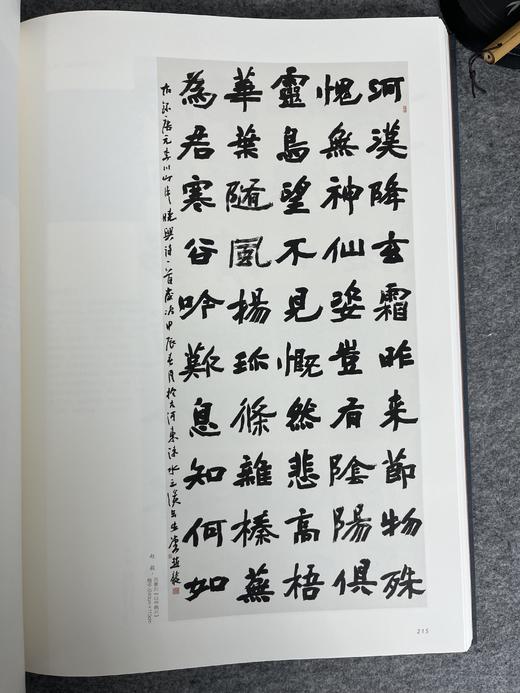 河漢降玄霜昨来節物殊
愧無神仙姿豈有陰陽俱
靈鳥望不見慨然悲高梧
華葉隨風楊珎條雜榛蕪
為君寒谷吟歎息知何如
右錄唐元季川山中曉興詩一首歲次甲辰春月於大河東涑水之濱
215